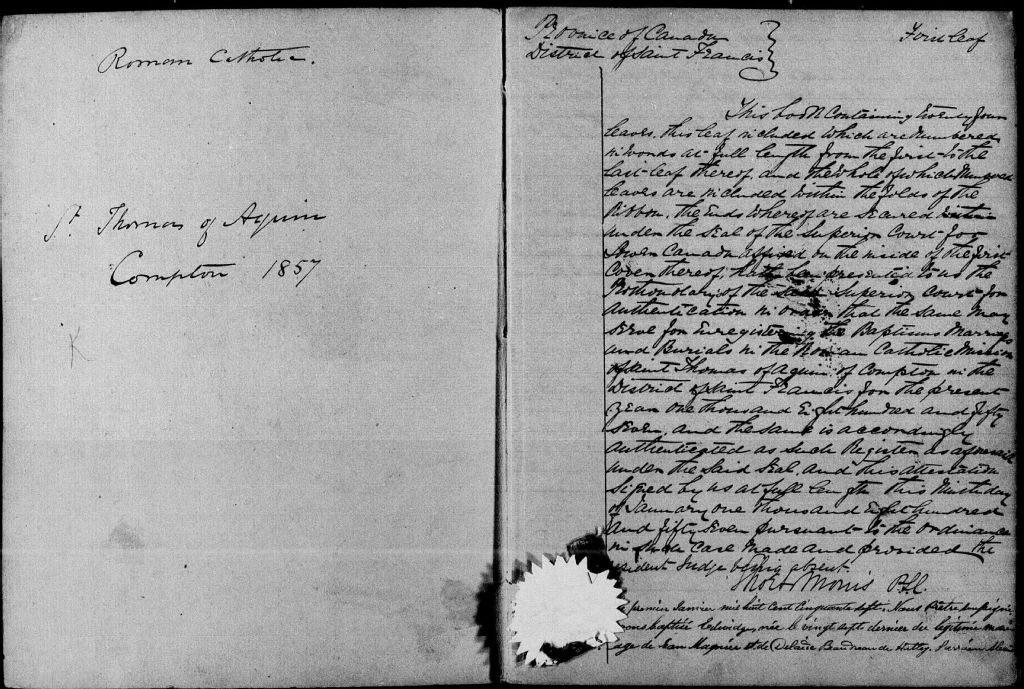 Roman Catholic.
St Thomas of Aquin
Compton 1857
K
Province of Canada
District of Saint Francis
First leaf
This book Containing twenty four
leaves, this leaf included which are numbered
in words at full length from the first to the
last leaf thereof, and the whole of which
leaves are included within the folds of the
Ribbon, the ends whereof are secured
under the seal of the Superior Court for
Lower Canada affixed on the inside of the first
Cover thereof, hath been presented to us the
Prothonotary of the Superior Court for
authentication in order that the same may
serve for Enregistering the Baptisms Marriages
and Burials in the Roman Catholic Mission
of Saint Thomas of Aquin of Compton in the
District of Saint Francis for the present
year one thousand Eight hundred and fifty
seven, and the same is accordingly
authenticated as such Register as aforesaid
under the said seal and this attestation
signed by us at full length this day
of January one thousand Eight hundred
and fifty seven pursuant to the ordinance
in such case made and provided the
resident Judge being absent
Short & Morris P.S.C.
premier Janvier mil huit cent cinquante sept, Nous Prêtre soussigné
avons baptisé Edwidge, née le vingt sept dernier du légitime mari
age de Jean Magnier et de Beaudreau de Hatley. Parrain